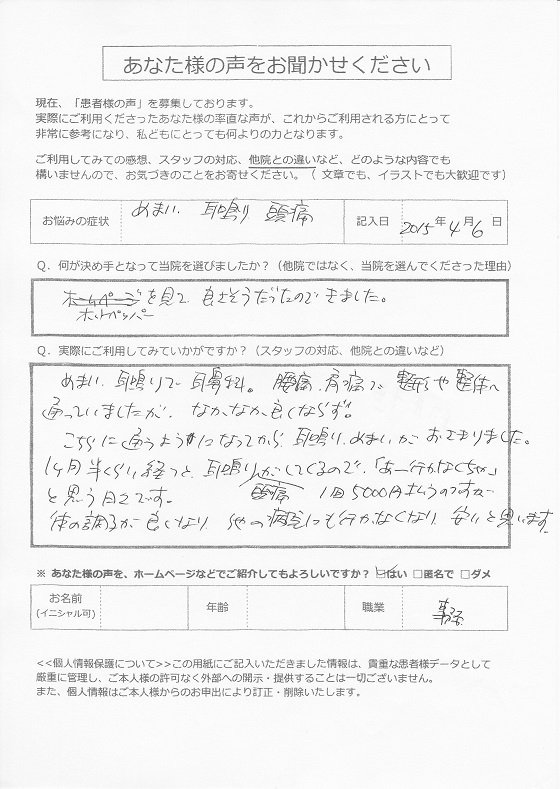 あなた様の声をお聞かせください
現在、「患者様の声」を募集しております。
実際にご利用くださったあなた様の率直な声が、これからご利用される方にとって
非常に参考になり、私どもにとっても何よりの力となります。
ご利用してみての感想、スタッフの対応、他院との違いなど、どのような内容でも
構いませんので、お気づきのことをお寄せください。（ 文章でも、イラストでも大歓迎です）
お悩みの症状 めまい 耳鳴り 頭痛 記入日 2015年4月6日
Q．何が決め手となって当院を選びましたか？（他院ではなく、当院を選んでくださった理由）
ホームページを見て 良さそうだったので きました。
ホットペッパー
Q．実際にご利用してみていかがですか？（スタッフの対応、他院との違いなど）
めまい、耳鳴りで 耳鼻科。腰痛、肩痛で 整形や整体へ
通っていましたが、なかなか良くならず。
こちらに通うようになってから、耳鳴り、めまいが おさまりました。
1ヶ月半くらい経つと、耳鳴りがしてくるので、「あー行かなくちゃ」
頭痛
と思う日々です。 1回5000円払うのですが
体の調子が良くなり 他の病院にも行かなくなり 安いと思います
※ あなた様の声を、ホームページなどでご紹介してもよろしいですか？ ☑はい □匿名で □ダメ
お名前
(イニシャル可)
年齢
職業
<<個人情報保護について>>この用紙にご記入いただきました情報は、貴重な患者様データとして
厳重に管理し、ご本人様の許可なく外部への開示・提供することは一切ございません。
また、個人情報はご本人様からのお申出により訂正・削除いたします。